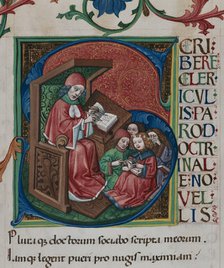 S CRI
BERE
CLER
ICVL
IS PA
RO D
OCTR
INAL
E NO
VEL
LIS
Pluraq; doctorum sociabo scripta meorum.
Iamq; legent pueri pro nugis maximiani